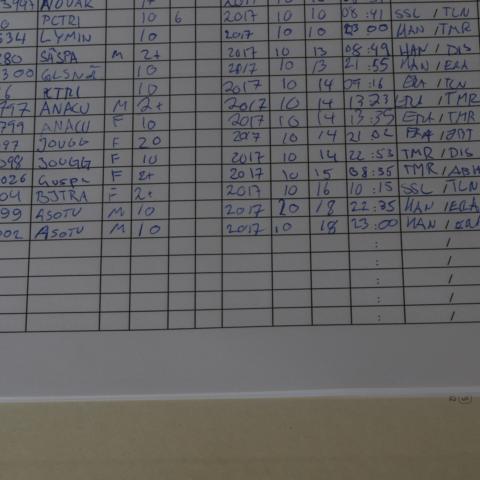 NOVAR 2017 10
PCTRI 10 6 2017 10 10 08:41 SSL/TLN
534 LYMIN 10 2017 10 10 23:00 HAN/TMR
280 M 2+ 2017 10 13 08:49 HAN/DIS
300 10 2017 10 13 21:55 HAN/ERA
6 10 2017 10 14 09:16 /TLN
797 ANACU M 2+ 2017 10 14 13:23 /TMR
799 ANACU F 10 2017 10 14 13:35 /TMR
097 JOUGG F 20 2017 10 14 21:02
098 JOUGG F 10 2017 10 14 22:53 TMR/DIS
026 F 2+ 2017 10 15 08:35 TMR/ABH
04 BJTRA F 2+ 2017 10 16 10:15 SSL/TLN
099 ASOTU M 10 2017 10 18 22:35 HAN/ERA
002 ASOTU M 10 2017 10 18 23:00 HAN/ERA
: /
: /
: /
: /
: /